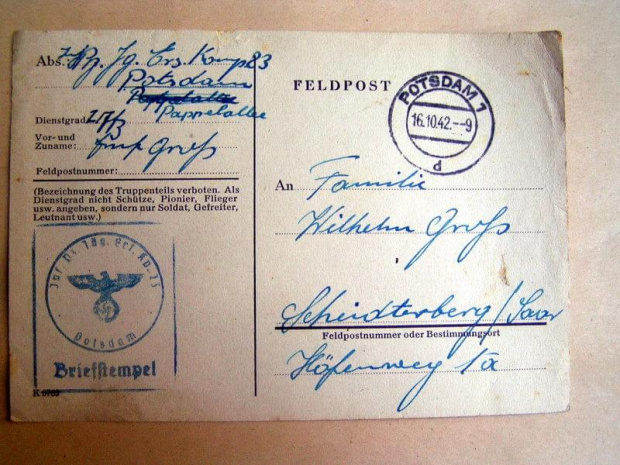 Abs.: Pz. Jg. Ers. Komp. 23
Potsdam
Pappelallee
Dienstgrad:
Vor- und
Zuname: Groß
Feldpostnummer:
(Bezeichnung des Truppenteils verboten. Als
Dienstgrad nicht Schütze, Pionier, Flieger
usw. angeben, sondern nur Soldat, Gefreiter,
Leutnant usw.)
Potsdam
Briefstempel
FELDPOST
POTSDAM 1
16.10.42.--9
d
An Familie
Wilhelm Groß
Scheidterberg/Saar
Feldpostnummer oder Bestimmungsort
Höfenweg 1a